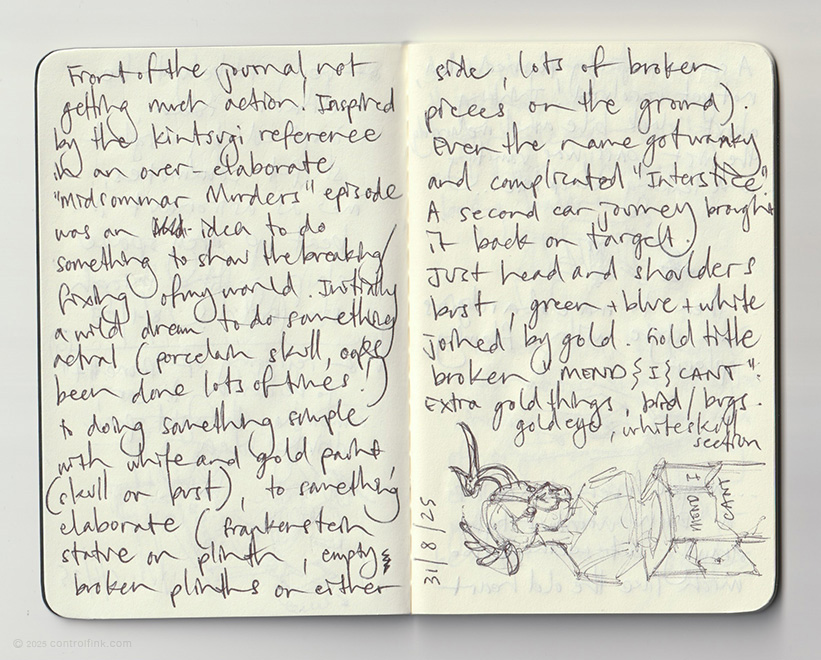 Front of the journal, not
getting much action. Inspired
by the kintsugi reference
in an over-elaborate
"Midsommar Murders" episode
was an idea to do
something to show the breaking/
fixing of my world. Initially
a wild dream to do something
actual (porcelain skull, oops
been done lots of times!)
to doing something simple
with white and gold paint
(skull or bust), to something
elaborate (frankenstein
statue on plinth, empty &
broken plinths on either
side, lots of broken
pieces on the ground).
Even the name got wanky
and complicated "Interstice".
A second car journey brought
it back on target.
Just head and shoulders
bust, green + blue + white
joined by gold. Gold title
broken "MEND { I } CANT":
Extra gold things, bird/bugs.
gold eye, white skull
section
MEND I
CANT
31/8/25
© 2025 controlfink.com